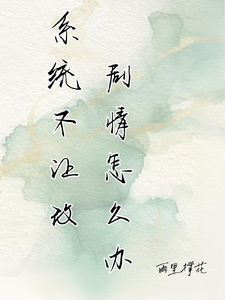 系统不让改
剧情怎么办
雨里撑花